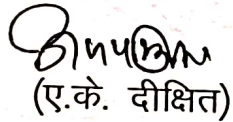 (ए.के. दीक्षित)